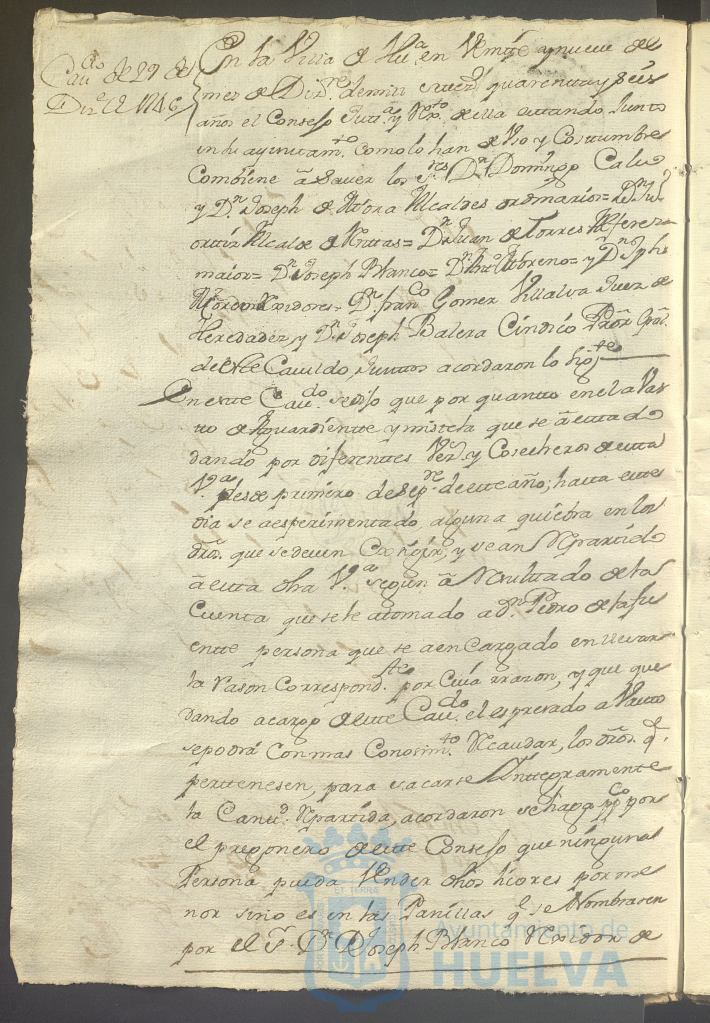 Cau.do de 29 de
Diz.e de 1746
En la Villa de Hu.a en Veintte y nueve de
mes de Diz.re de mil settez.s quarenta y seis
años el Consejo Justt.a y Rex.to de ella estando Junto
en su ayuntam.to como lo han de Uso y Costumbre
Combiene â Saver los S.res D.n Domingo Calvo
y D.n Joseph de Mora Alcaldes ordinarios= D.n Ju.o
orttiz Alcalde de Rentas= D.n Juan de Torres Alferez
maior= D.n Joseph Blanco= D.n Moreno= y D.n Jph
Rexidores= D.n fran.co Gomez Villalva Juez de
Heredades y D.n Joseph Balera Cindico Pror. Gral.
de este Cavildo Juntos acordaron lo sig.te
En este Cau.do se dijo que por quanto en el avas
to de Aguardiente y mistela que se â estado
dando por diferentes Vez.s y Cosecheros de esta
V.a desde primero de Sep.re de este año, hasta este
dia se a esperimentado, alguna quiebra en los
dros. que se deven Exhijir, y se an Repartido
â esta dha V.a segun â Resultado de la
Cuenta que se le a tomado a D.n Pedro de la fu
ente persona que se a encargado en llevar
la rason Correspond.te por Cuia rrazon, y que que
dando a cargo de este Cau.do el espresado avasto
se podrâ Con mas Conosim.to Recaudar, los dros. q.e
pertenesen, para sacarse Ynttegramente
la Cantt.d Repartida, acordaron se haga pp.co por
el pregonero de este Consejo que ninguna
Persona pueda Vender dhos licores por me
nor sino es en las Panillas q.e se Nombrasen
por el S.r D.n Joseph Blanco Rexidor de
ET TERRÆ
Ayuntamiento de
HUELVA